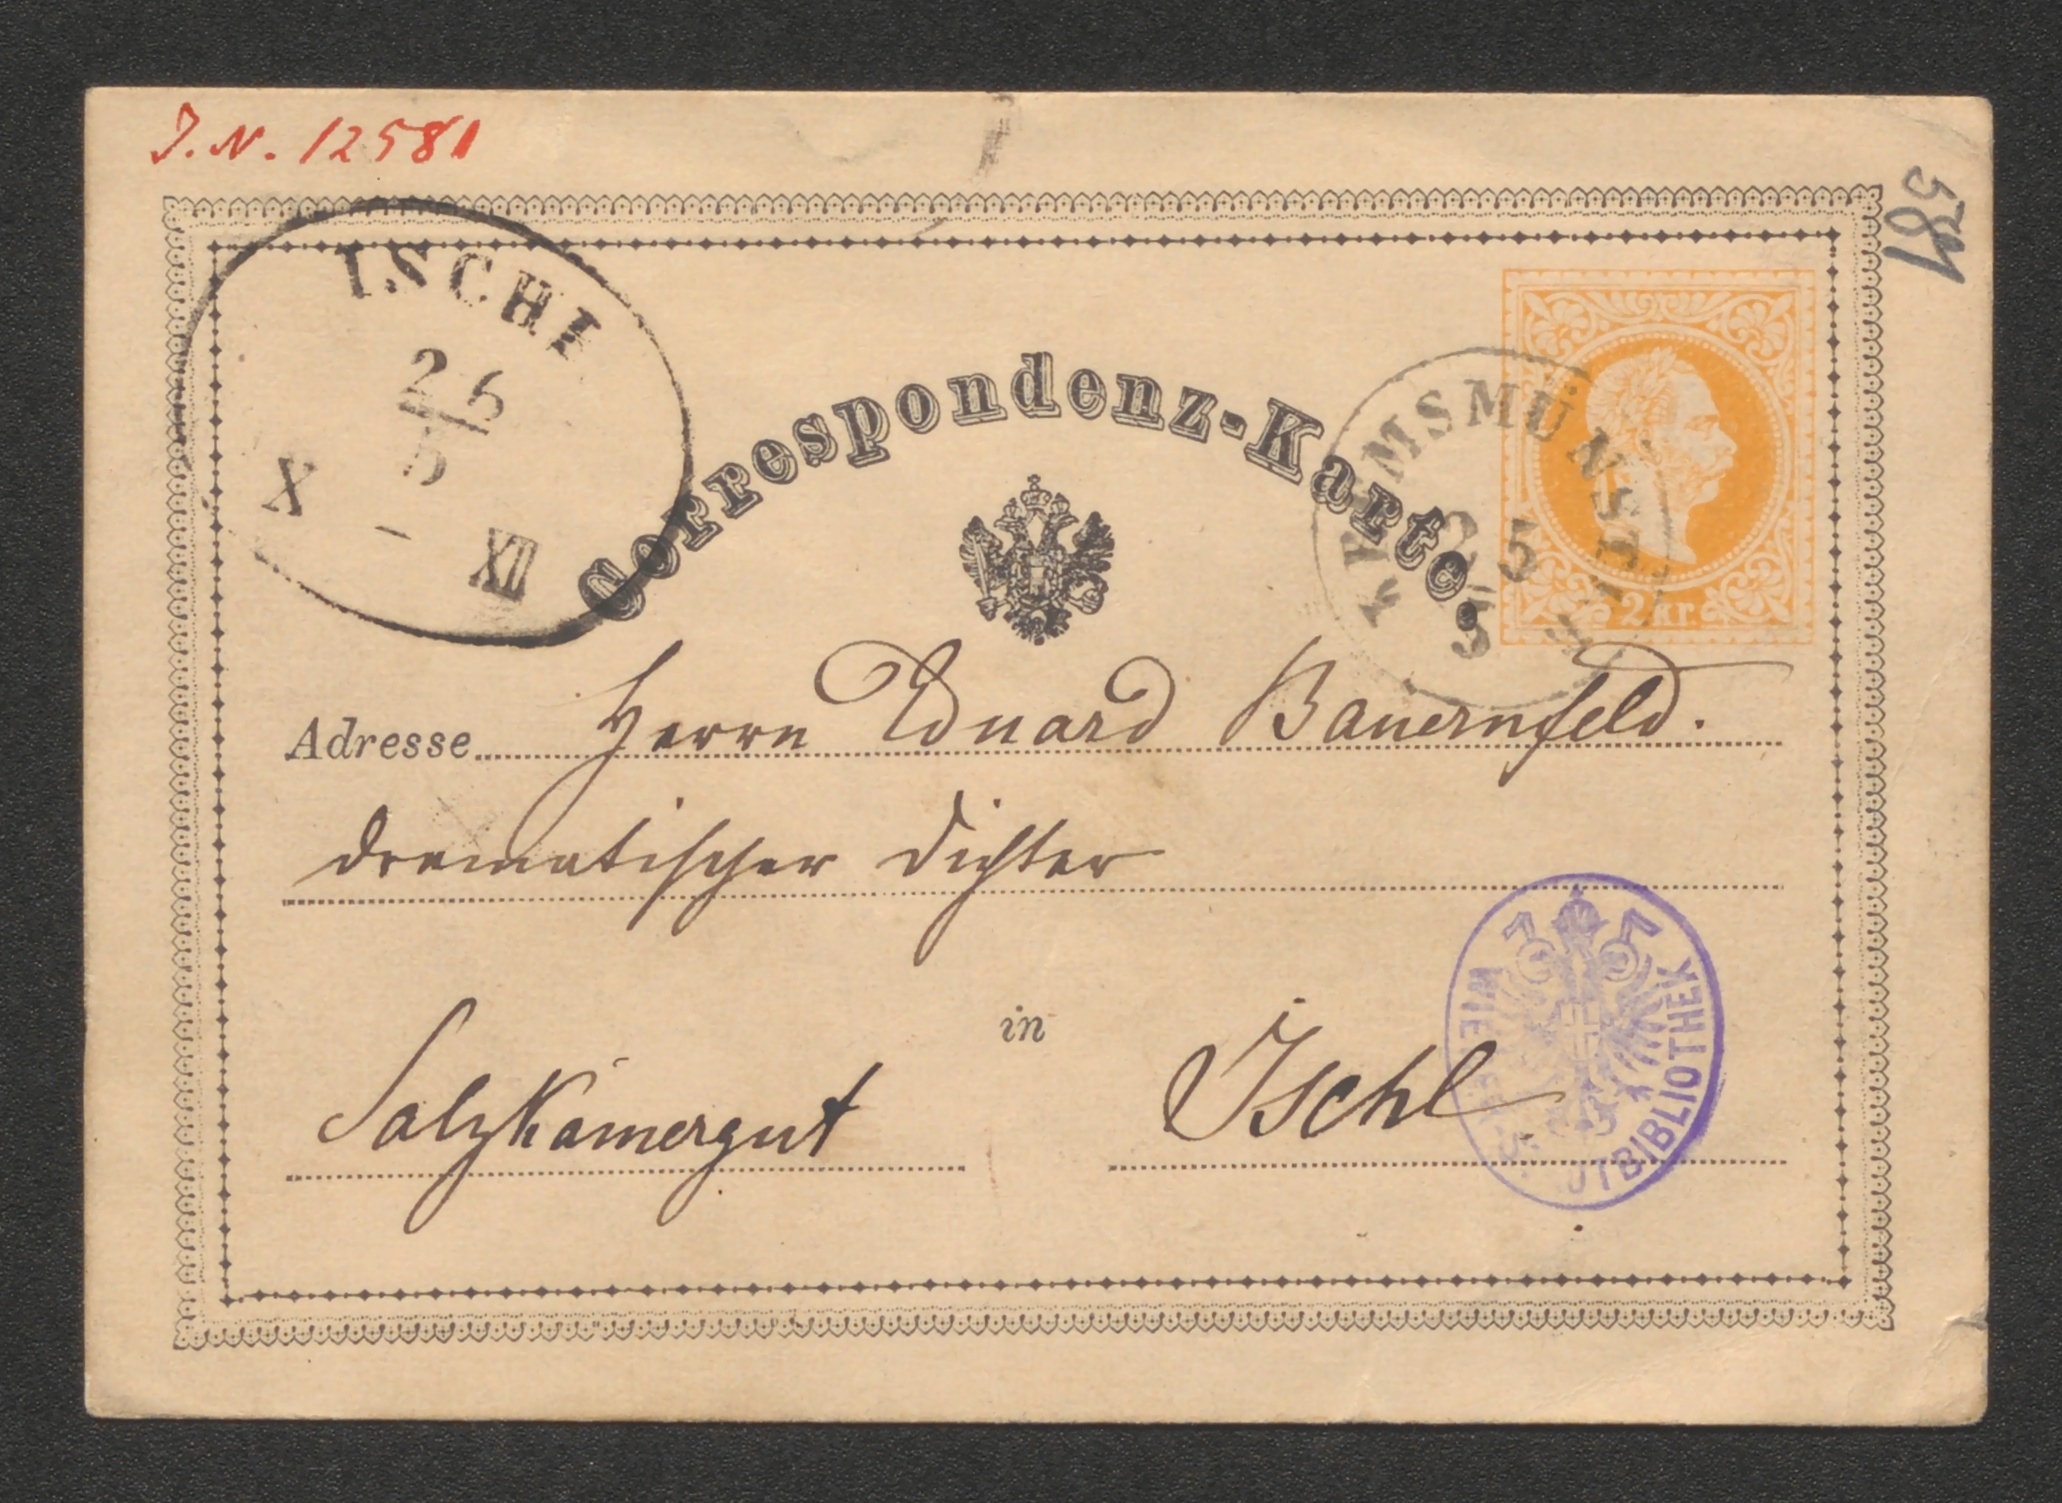 J.N. 12581
581
ISCHL
26
5
X - XII
Correspondenz-Karte.
KREMSMÜNSTER
25
5
2 kr.
Adresse Herrn Eduard Bauernfeld.
dramatischer Dichter
in
Salzkamergut Ischl
WIENER STADTBIBLIOTHEK